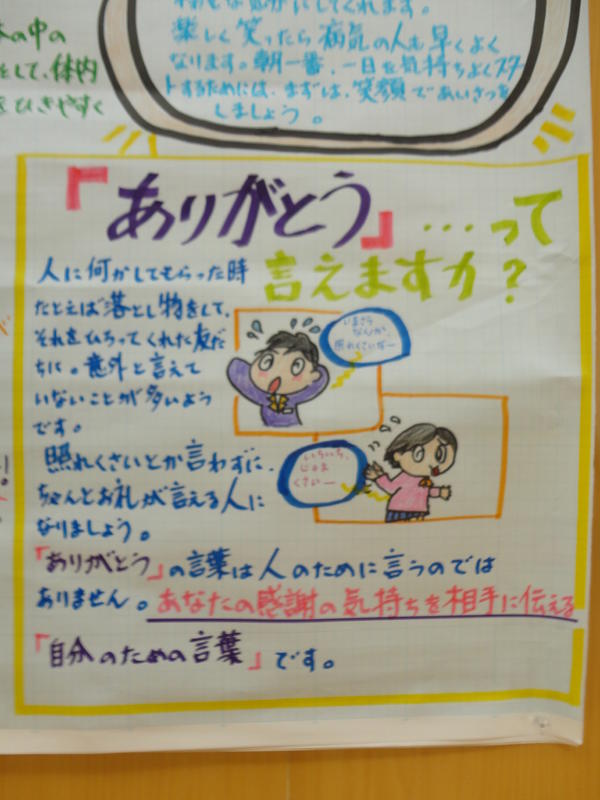 な気分にしてくれます。
楽しく笑ったら病気の人も早くよく
なります。朝一番、一日を気持ちよくスター
トするためには、まずは、笑顔であいさつを
しましょう。
の中の
をして、体内
をひきやすく
『ありがとう』…って
言えますか？
人に何かしてもらった時
たとえば落とし物をして、
それをひろってくれた友だ
ちに。意外と言えて
いないことが多いよう
です。
照れくさいとか言わずに、
ちゃんとお礼が言える人に
なりましょう。
いまさら
なんか、
照れくさいなー
いちいち、
じゃま
くさいー
「ありがとう」の言葉は人のために言うのでは
ありません。あなたの感謝の気持ちを相手に伝える
「自分のための言葉」です。